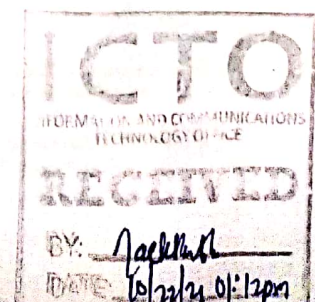 ICTO
INFORMATION AND COMMUNICATIONS
TECHNOLOGY OFFICE
RECEIVED
BY:
DATE: 10/22/21 01:12pm